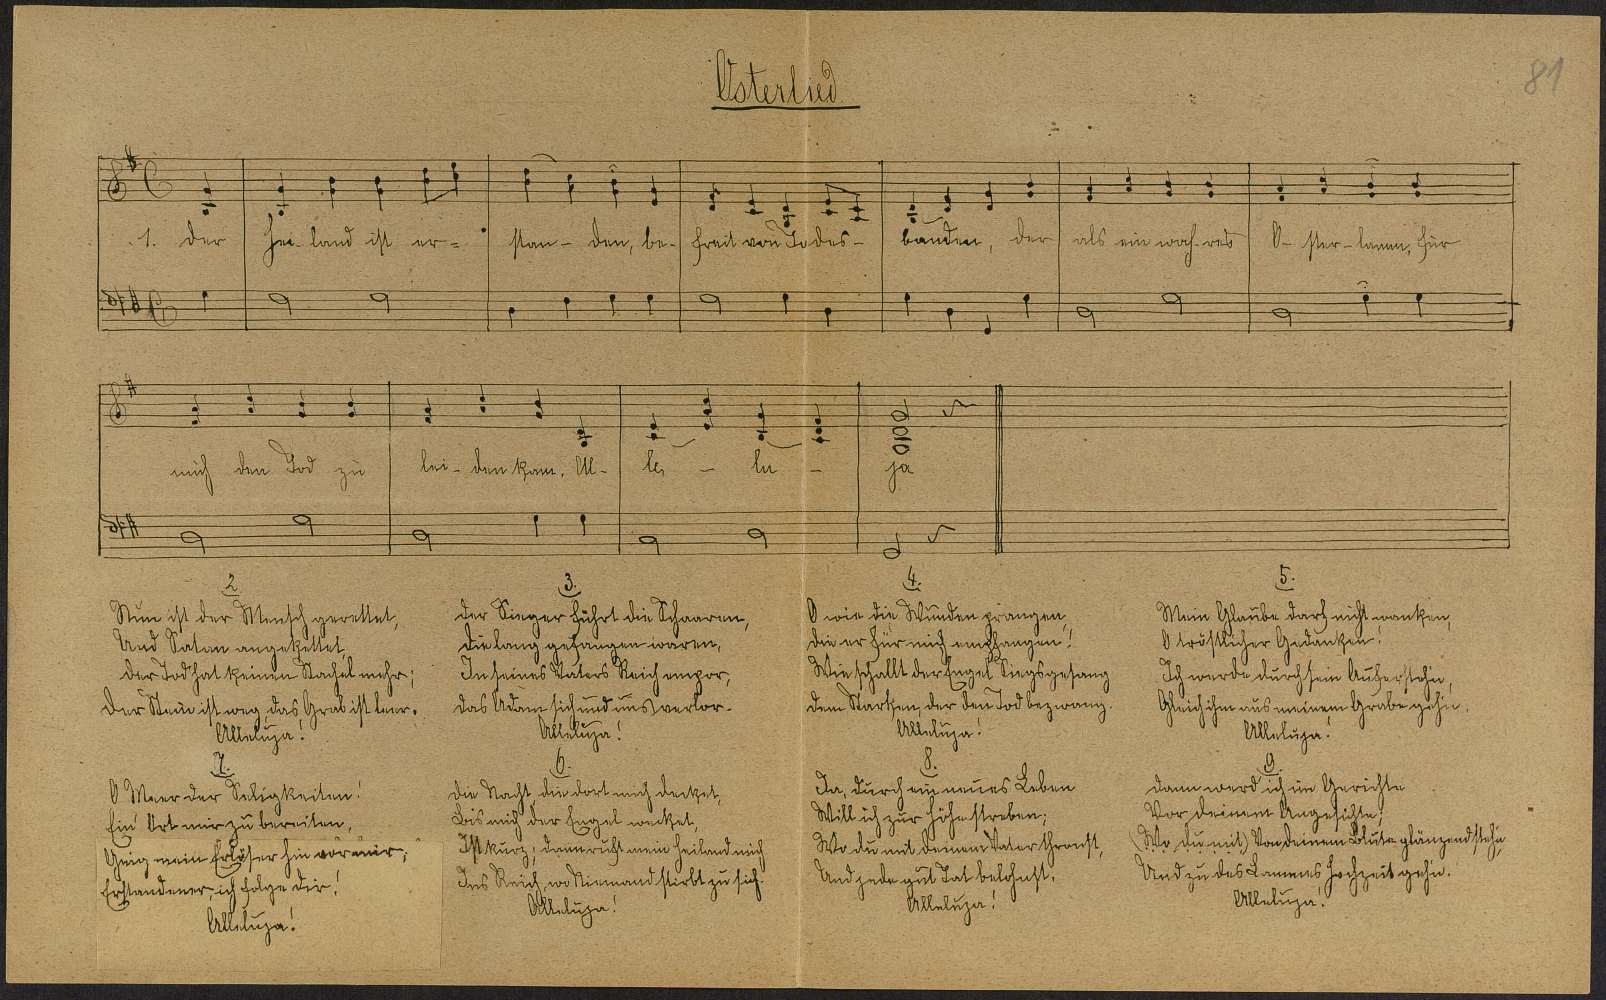 Osterlied
81
1. Der Hei- land ist er- stan- den, be- freit von Todes- banden, der als ein wah-res O- ster-lamm, für
mich den Tod zu lei- den kam. Al- le, - lu - ja
2
Nun ist der Mensch gerettet,
Und Satan angekettet,
Der Tod hat keinen Stachel mehr;
Der Stein ist weg, das Grab ist leer.
Alleluja!
3.
Der Sieger führt die Schaaren,
Die lang gefangen waren,
In seines Vaters Reich empor,
Das Adam sich und uns verlor.
Alleluja!
4.
O wie die Wunden prangen,
Die er für mich empfangen!
Wie schallt der Engel Siegsgesang
Dem Starken, der den Tod bezwang.
Alleluja!
5.
Mein Glaube darf nicht wanken,
O tröstlicher Gedanken!
Ich werde durch sein Aufersteh'n,
Gleich ihm aus meinem Grabe geh'n.
Alleluja!
7.
O Meer der Seligkeiten!
Ein Ort mir zu bereiten,
Ging mein Erlöser hin vor mir;
Erstandener, ich folge Dir!
Alleluja!
6.
Die Nacht, die dort mich decket,
Bis mich der Engel wecket,
Ist kurz, dann ruft mein Heiland mich
Ins Reich, wo Niemand stirbt zu sich.
Alleluja!
8.
Ja, durch ein neues Leben
Will ich zur Höhe streben;
Wo du mit Deinem Vater thronst,
Und jede gut Tat belohnst.
Alleluja!
9.
Dann werd ich im Gerichte
Vor Deinem Angesichte,
(Wo du mit) Von Deinem Blute glänzend steh'n,
Und zu des Lammes Hochzeit geh'n.
Alleluja!